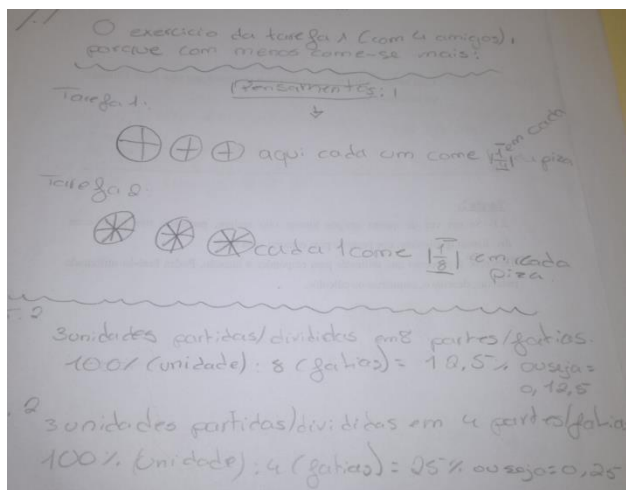 O exercicio da tarefa 1 (com 4 amigos),
porque com menos come-se mais:
Pensamentos:
Tarefa 1:
aqui cada um come 1/4 em cada piza
Tarefa 2:
cada 1 come 1/8 em cada
piza.
3 unidades partidas/divididas em 8 partes/fatias.
100% (unidade) : 8 (fatias) = 12,5% ou seja =
0,12,5
2
3 unidades partidas/divididas em 4 partes/fatia
100% (unidade) : 4 (fatias) = 25% ou seja = 0,25